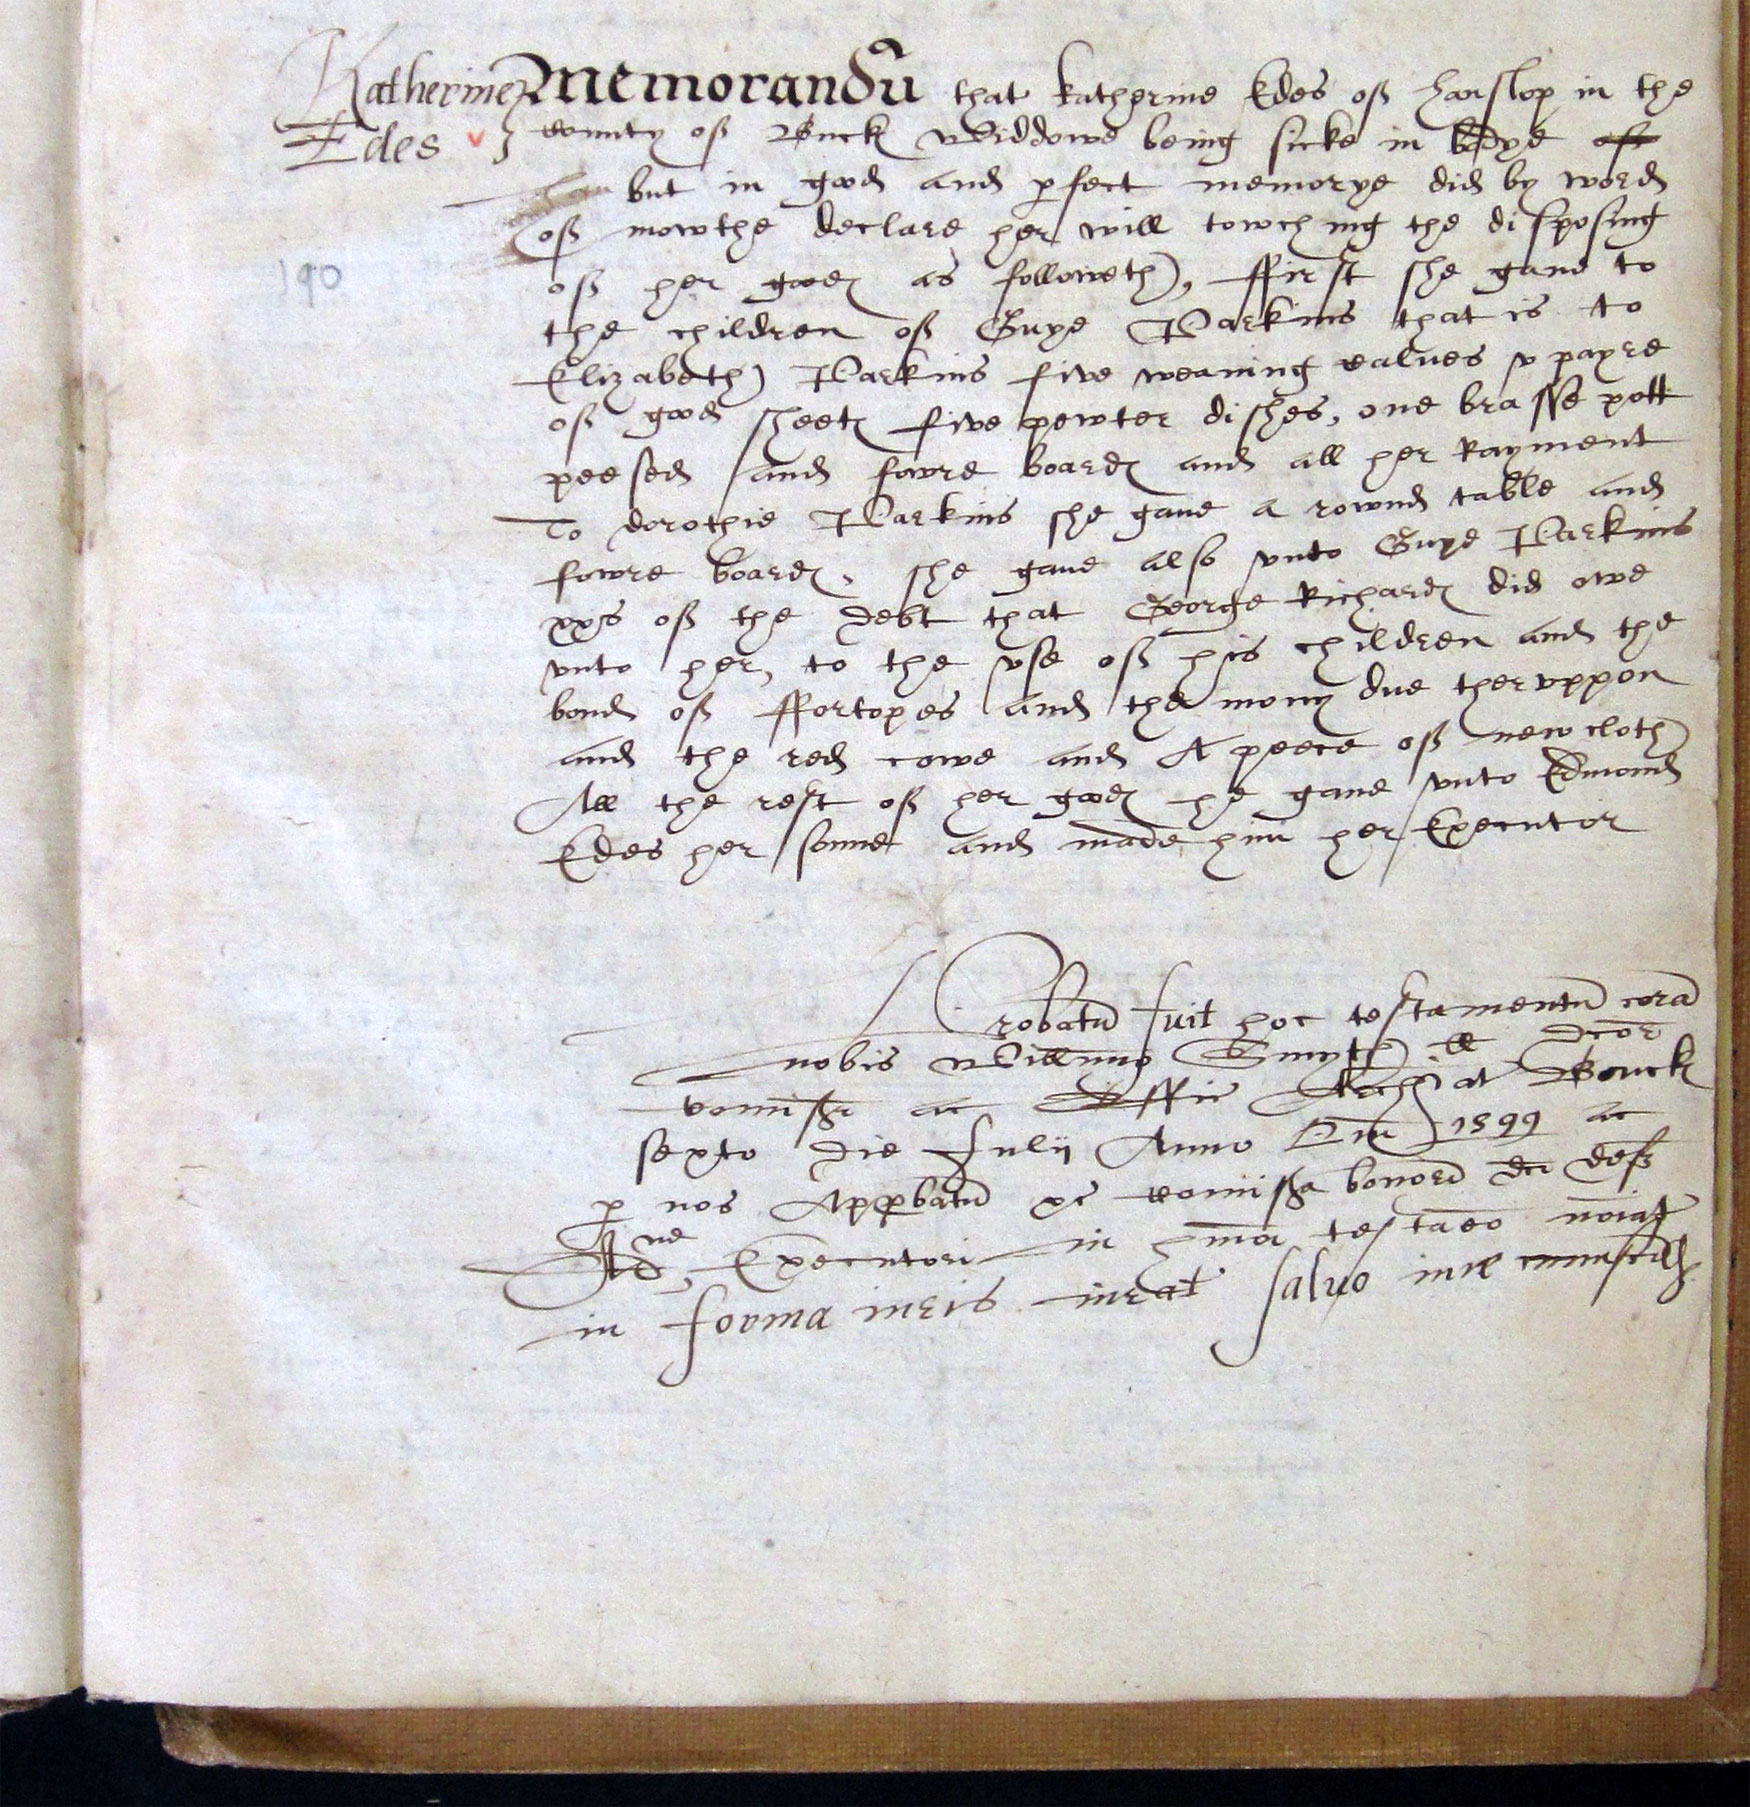 Katherine
Edes
190
Memorandū that Katherine Edes of Hanslop in the
county of Buck Widdowe being sicke in bodye
but in good and pfect memorye did by word
of mowthe declare her will towching the disposing
of her goods as followeth, ffirst she gaue to
the children of Guye Parkins that is to
Elizabeth Parkins five weaning calues v payre
of good sheets five pewter dishes, one brasse pott
peesed and fowre boards and all her Rayment
To dorothie Parkins she gaue a rownd table and
fowre boards. she gaue also vnto Guye Parkins
xxs of the debt that George Richards did owe
vnto her, to the vse of his children and the
bond of ffortopes and the mony due thervppon
and the red cowe and A peece of new cloth
All the rest of her goods he gaue vnto Edmond
Edes her sonne and made him her Executor
Probatū fuit hoc testamentū corā
nobis Willmo Smyth ll dcor
comissr ac Offic Archiat Bouck
sexto die Julij Anno Dm 1599 ac
p nos Approbatū &c comissa bonorū dci def
Ad Executori in hmoi testaeo noiat
in forma iuris iurat saluo iure cuiuscūq